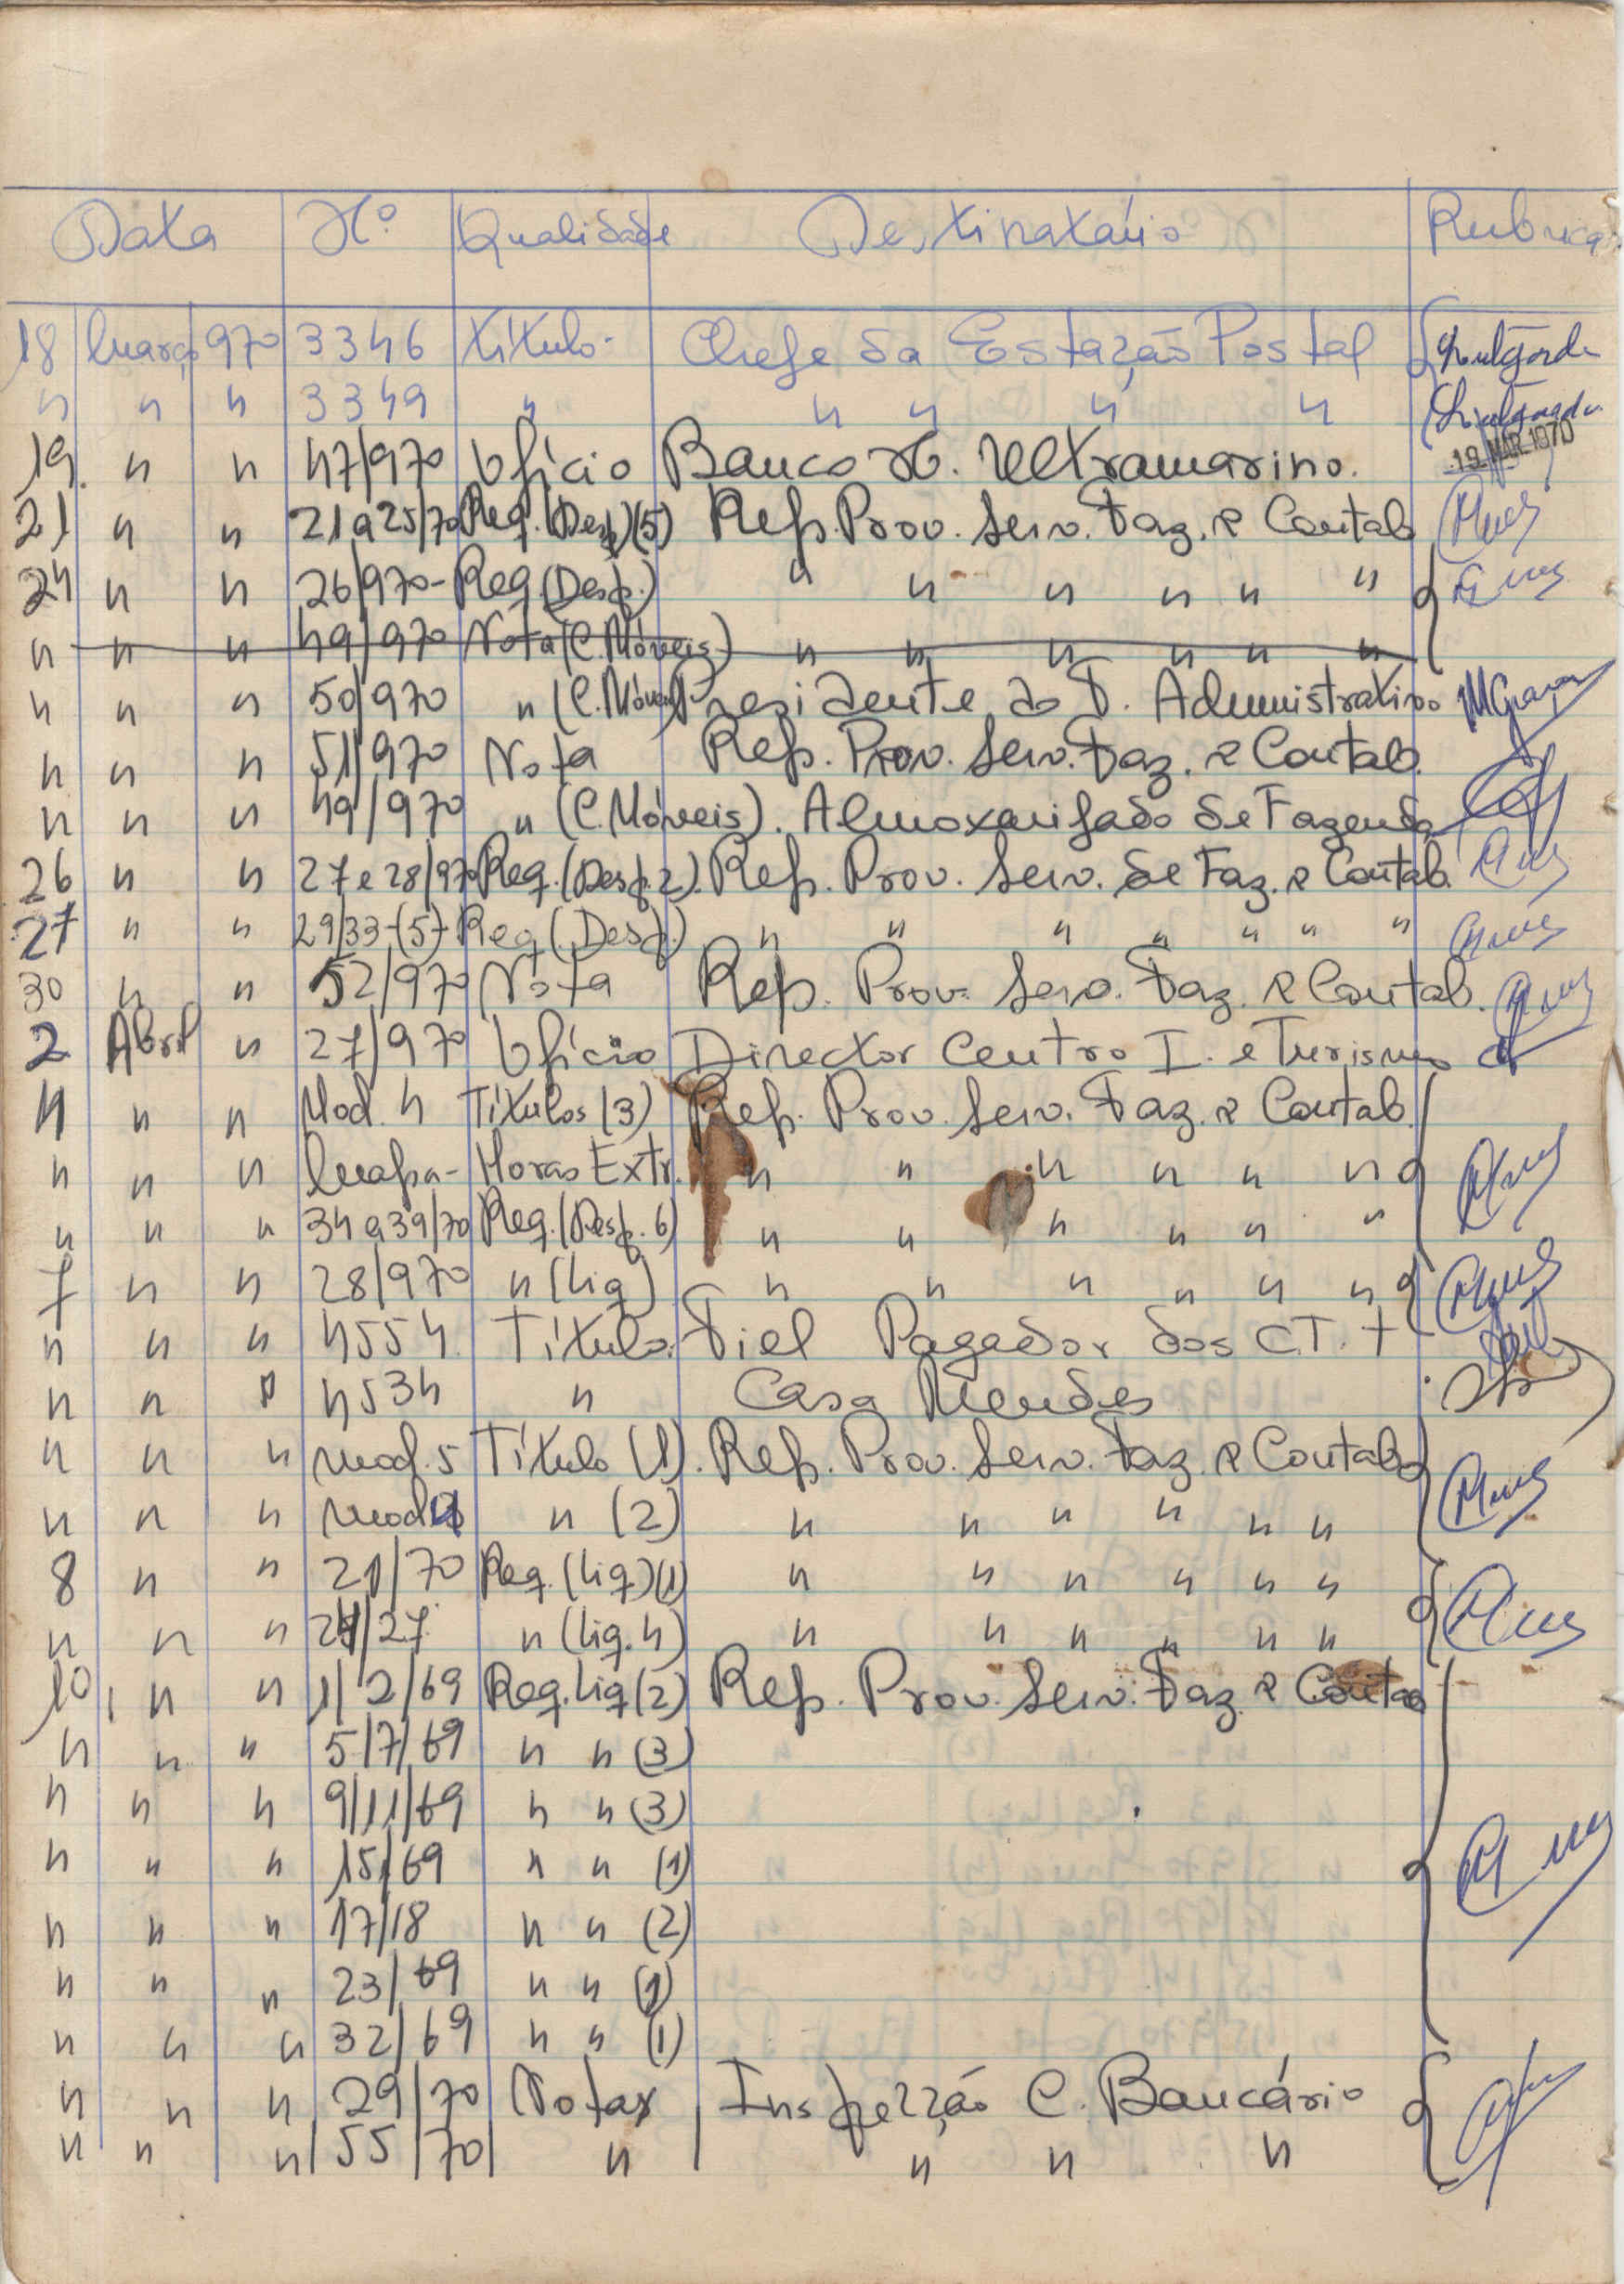 Data Nº Qualidade Destinatário Rubrica
18 Março 970 3346 Título. Chefe da Estação Postal
" " " 3349 " " " " "
19. " " 47/970 Ofício Banco N. Ultramarino. 19 MAR 1970
21 " " 21 a 25/70 Req. (Desp.) (5) Rep. Prov. Serv. Faz. e Contab
24 " " 26/970 - Req. (Desp.) " " " " " "
" " " 49/970 Nota (C. Móveis) " " " " " "
" " " 50/970 " (C. Móveis) Presidente do T. Administrativo
" " " 51/970 Nota Rep. Prov. Serv. Faz. e Contab.
" " " 49/970 " (C. Móveis). Almoxarifado de Fazenda
26 " " 27 e 28/970 Req. (Desp. 2). Rep. Prov. Serv. de Faz. e Contab.
27 " " 29/33-(5)- Req. (Desp.) " " " " " " "
30 " " 52/970 Nota Rep. Prov. Serv. Faz. e Contab.
2 Abril " 27/970 Ofício Director Centro I. e Turismo
4 " " Mod. 4 Títulos (3) Rep. Prov. Serv. Faz. e Contab.
" " " Mapa - Horas Extr. " " " " " "
" " " 34 a 39/70 Req. (Desp. 6) " " " " " "
7 " " 28/970 " (Liq) " " " " " "
" " " 4554 Título. Fiel Pagador dos C.T.T
" " " 4534 " Casa Mendes
" " " Mod. 5 Título (1). Rep. Prov. Serv. Faz. e Contab
" " " Mod. " (2) " " " " " "
8 " " 21/70 Req. (Liq) (1) " " " " " "
" " " 24/27. " (Liq. 4) " " " " " "
10, " " 1/2/69 Req. Liq (2) Rep. Prov. Serv. Faz. e Contab
" " " 5/7/69 " " (3)
" " " 9/11/69 " " (3)
" " " 15/69 " " (1)
" " " 17/18 " " (2)
" " " 23/69 " " (1)
" " " 32/69 " " (1)
" " " 29/70 Notas Inspecção C. Bancário
" " " 55/70 " " " "